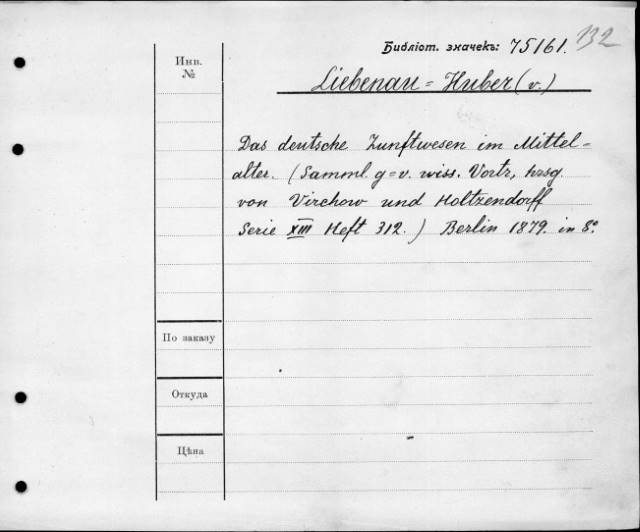 Библіот. значекъ: 75161. 132
Инв.
№
Liebenau = Huber (v.)
Das deutsche Zunftwesen im Mittel-
alter. (Samml. g=v. wiss. Vortr., hrsg.
von Virchow und Holtzendorff
Serie XIII Heft 312.) Berlin 1879. in 8°.
По заказу
Откуда
Цѣна